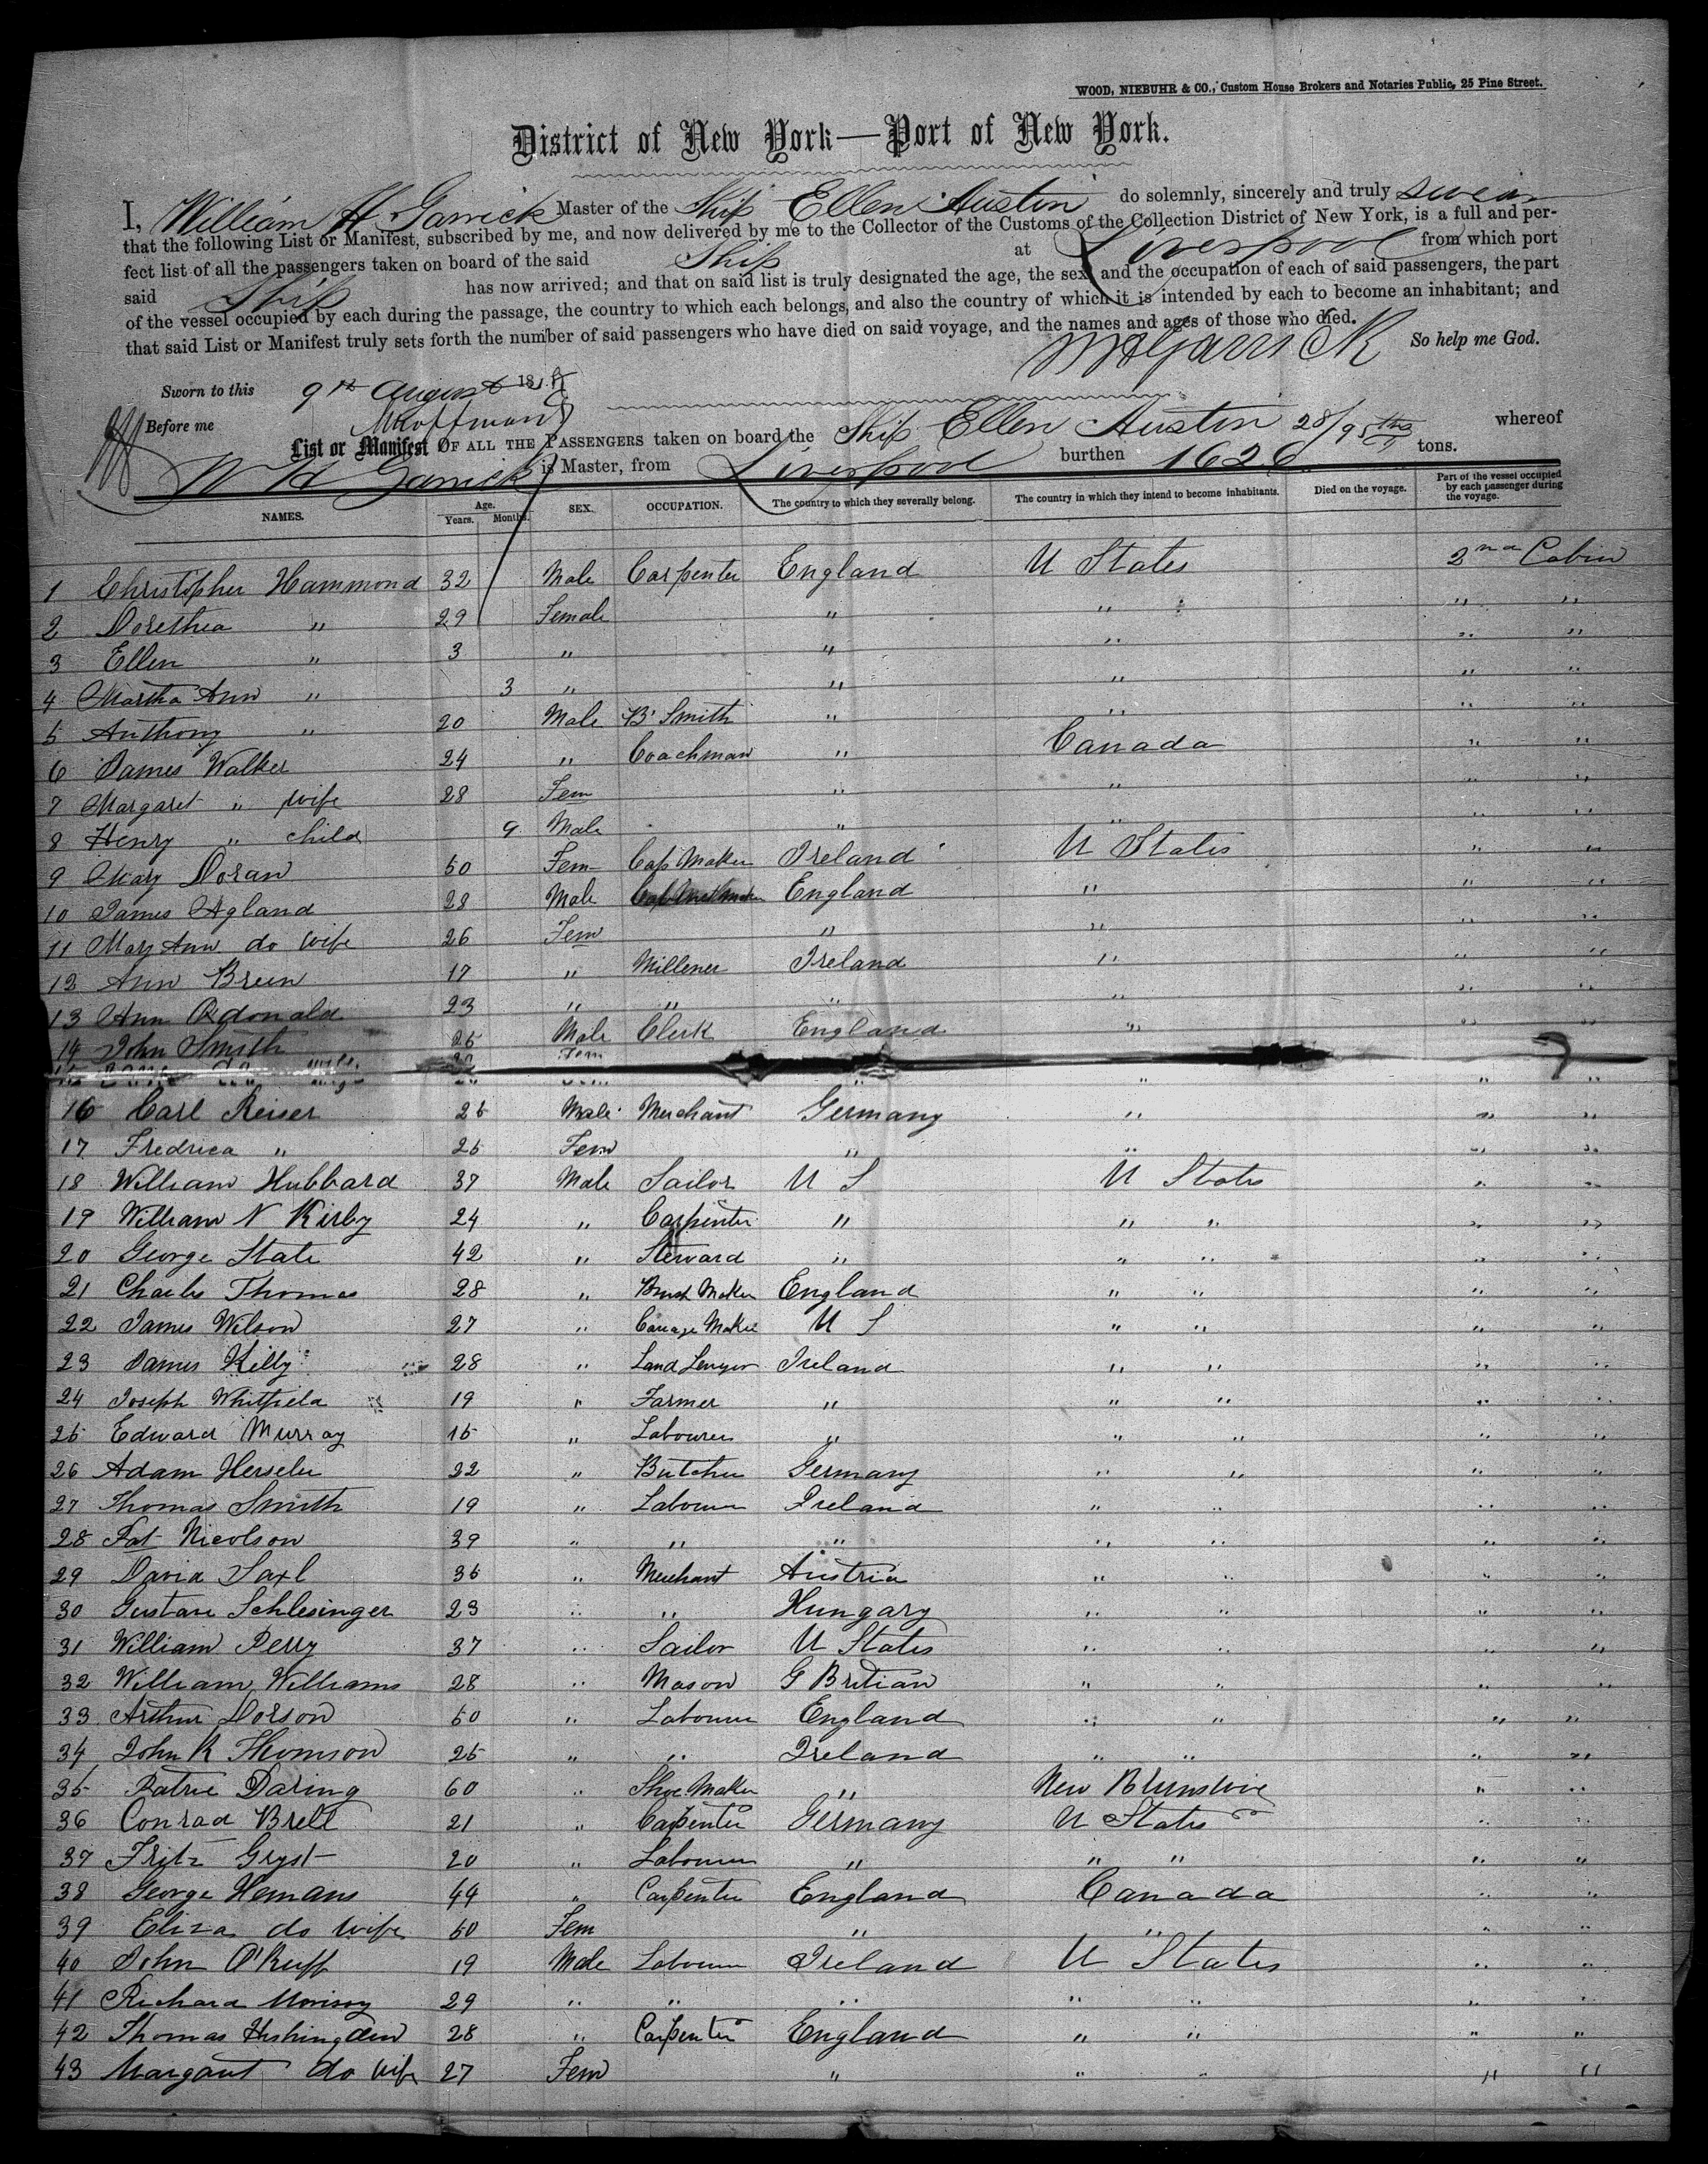 WOOD, NIEBUHR & CO., Custom House Brokers and Notaries Public, 25 Pine Street.
District of New York—Port of New York.
I, William H Garrick Master of the Ship Ellen Austin do solemnly, sincerely and truly swear
that the following List or Manifest, subscribed by me, and now delivered by me to the Collector of the Customs of the Collection District of New York, is a full and per-
fect list of all the passengers taken on board of the said Ship at Liverpool from which port
said Ship has now arrived; and that on said list is truly designated the age, the sex and the occupation of each of said passengers, the part
of the vessel occupied by each during the passage, the country to which each belongs, and also the country of which it is intended by each to become an inhabitant; and
that said List or Manifest truly sets forth the number of said passengers who have died on said voyage, and the names and ages of those who died.
WHGarrick So help me God.
Sworn to this 9th August 18
Before me
List or Manifest OF ALL THE PASSENGERS taken on board the Ship Ellen Austin 28/95ths whereof
W H Garrick is Master, from Liverpool burthen 1626 tons.
NAMES. Age. Years. Months. SEX. OCCUPATION. The country to which they severally belong. The country in which they intend to become inhabitants. Died on the voyage. Part of the vessel occupied by each passenger during the voyage.
1 Christopher Hammond 32 Male Carpenter England U States 2nd Cabin
2 Dorethea " 29 Female " " " "
3 Ellen " 3 " " " " "
4 Martha Ann " 3 " " " " "
5 Anthony " 20 Male B Smith " " " "
6 James Walker 24 " Coachman " Canada " "
7 Margaret " wife 28 Fem " " " "
8 Henry " child 9 Male " " " "
9 Mary Doran 50 Fem Cap Maker Ireland U States " "
10 James Agland 28 Male England " " "
11 Mary Ann do wife 26 Fem " " " "
12 Ann Breen 17 " Millener Ireland " " "
13 Ann Odonald 23 " " " " " "
14 John Smith 25 Male Clerk England " " "
wife Fem " " " "
16 Carl Reiser 25 Male Merchant Germany " " "
17 Fredrica " 25 Fem " " " "
18 William Hubbard 37 Male Sailor U S U States " "
19 William N Kirby 24 " Carpenter " " " " "
20 George State 42 " Steward " " " " "
21 Charles Thomas 28 " Brush Maker England " " " "
22 James Wilson 27 " Carriage Maker U S " " " "
23 James Killy 28 " Land Ireland " " " "
24 Joseph Whitfield 19 " Farmer " " " " "
25 Edward Murray 15 " Labourer " " " " "
26 Adam Herseler 22 " Butcher Germany " " " "
27 Thomas Smith 19 " Labourer Ireland " " " "
28 Pat Nicolson 39 " " " " " " "
29 David Saxl 35 " Merchant Austria " " " "
30 Gustave Schlesinger 23 " " Hungary " " " "
31 William Perry 37 " Sailor U States " " " "
32 William Williams 28 " Mason G Britian " " " "
33 Arthur Dorson 50 " Labourer England " " " "
34 John R Thomson 25 " " Ireland " " " "
35 Daring 60 " Shoe Maker " New " "
36 Conrad Brell 21 " Carpenter Germany U States " "
37 Fritz Gryst 20 " Labourer " " " " "
38 George Hemans 44 " Carpenter England Canada " "
39 Eliza do wife 50 Fem " " " "
40 John O'Keiff 19 Male Labourer Ireland U States " "
41 Richard Morisoy 29 " " " " " " "
42 Thomas Hishingden 28 " Carpenter England " " " "
43 Margaret do wife 27 Fem " " " " "